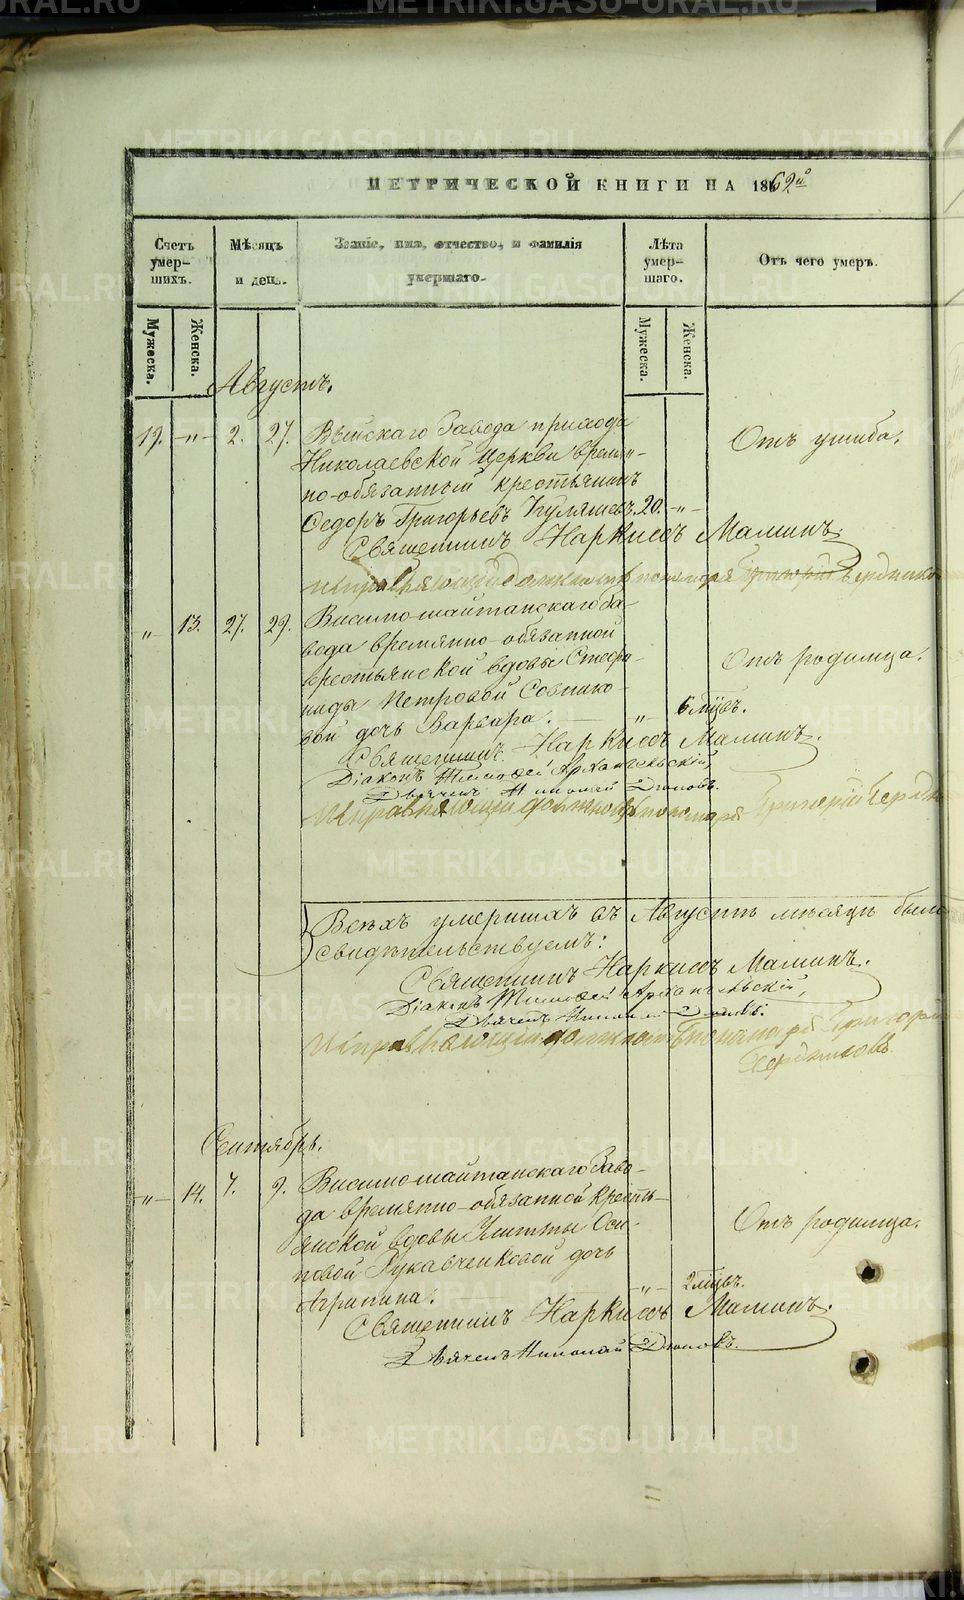 МЕТРИЧЕСКОЙ КНИГИ НА 1862й
Счетъ умер-шихъ.
Мѣсяцъ и день.
Званіе, имя, отчество, и фамилія умершаго.
Лѣта умер-шаго.
Отъ чего умеръ.
Мужеска.
Женска.
Мужеска.
Женска.
Августъ.
19. -„- 2. 27. Выйскаго Завода прихода
Николаевской Церкви времян-
но-обязанный крестьянинъ
Ѳедоръ Григорьевъ Куляшевъ. 20. -„-
Отъ ушиба.
Священникъ Наркисъ Маминъ.
Исправляющій должность пономаря Григорій
„- 13. 27. 29. Висимо-шайтанскаго За-
вода времянно-обязанной
крестьянской вдовы Стефа-
ниды Петровой
вой дочь Варвара. — „- 6 мцъв.
Отъ родимца.
Священникъ Наркисъ Маминъ.
Діаконъ Тимофей Архангельскій,
Дьячекъ Николай Дюковъ.
Исправляющій должность пономаря Григорій
Всѣхъ умершихъ въ Августѣ мѣсяцѣ было
свидѣтельствуемъ:
Священникъ Наркисъ Маминъ.
Діаконъ Тимофей Архангельскій,
Дьячекъ Николай Дюковъ.
Исправляющій должность пономаря Григорій
Сентябрь.
-„- 14. 7. 9. Висимо-шайтанскаго Заво-
да времянно-обязанной кресть-
янской вдовы Улитты Оси-
повой Рукавченковой дочь
Агрипина. — „- 2 мцъв.
Отъ родимца.
Священникъ Наркисъ Маминъ.
Дьячекъ Николай Дюковъ.